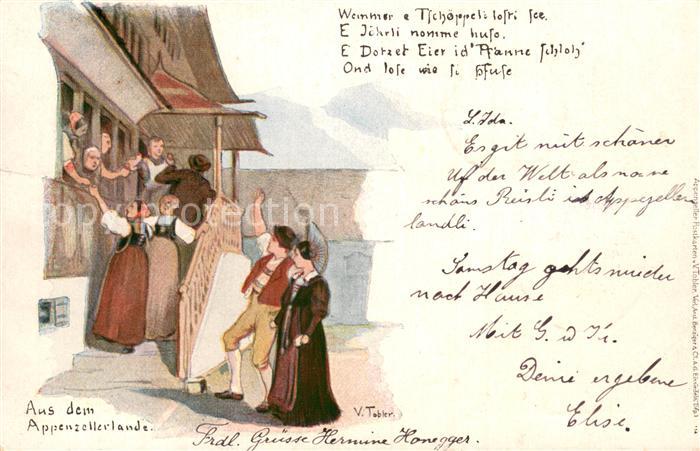 Wemmer e Tschöppeli losti see.
E Jöhrli nomme huso.
E Dotzet Eier id' Pfanne schloh'
Ond lose wie si pfuse
L. Ida.
Es git nüt schöner
Uf der Welt als no ne
schöns Reisli is Appezeller
landli.
Samstag gehts wieder
nach Hause
Mit G. u
Deine ergebene
Elise.
Aus dem
Appenzellerlande.
V. Tobler.
Frdl. Grüsse Hermine Honegger.
Appenzeller Postkarten v. V. Tobler,